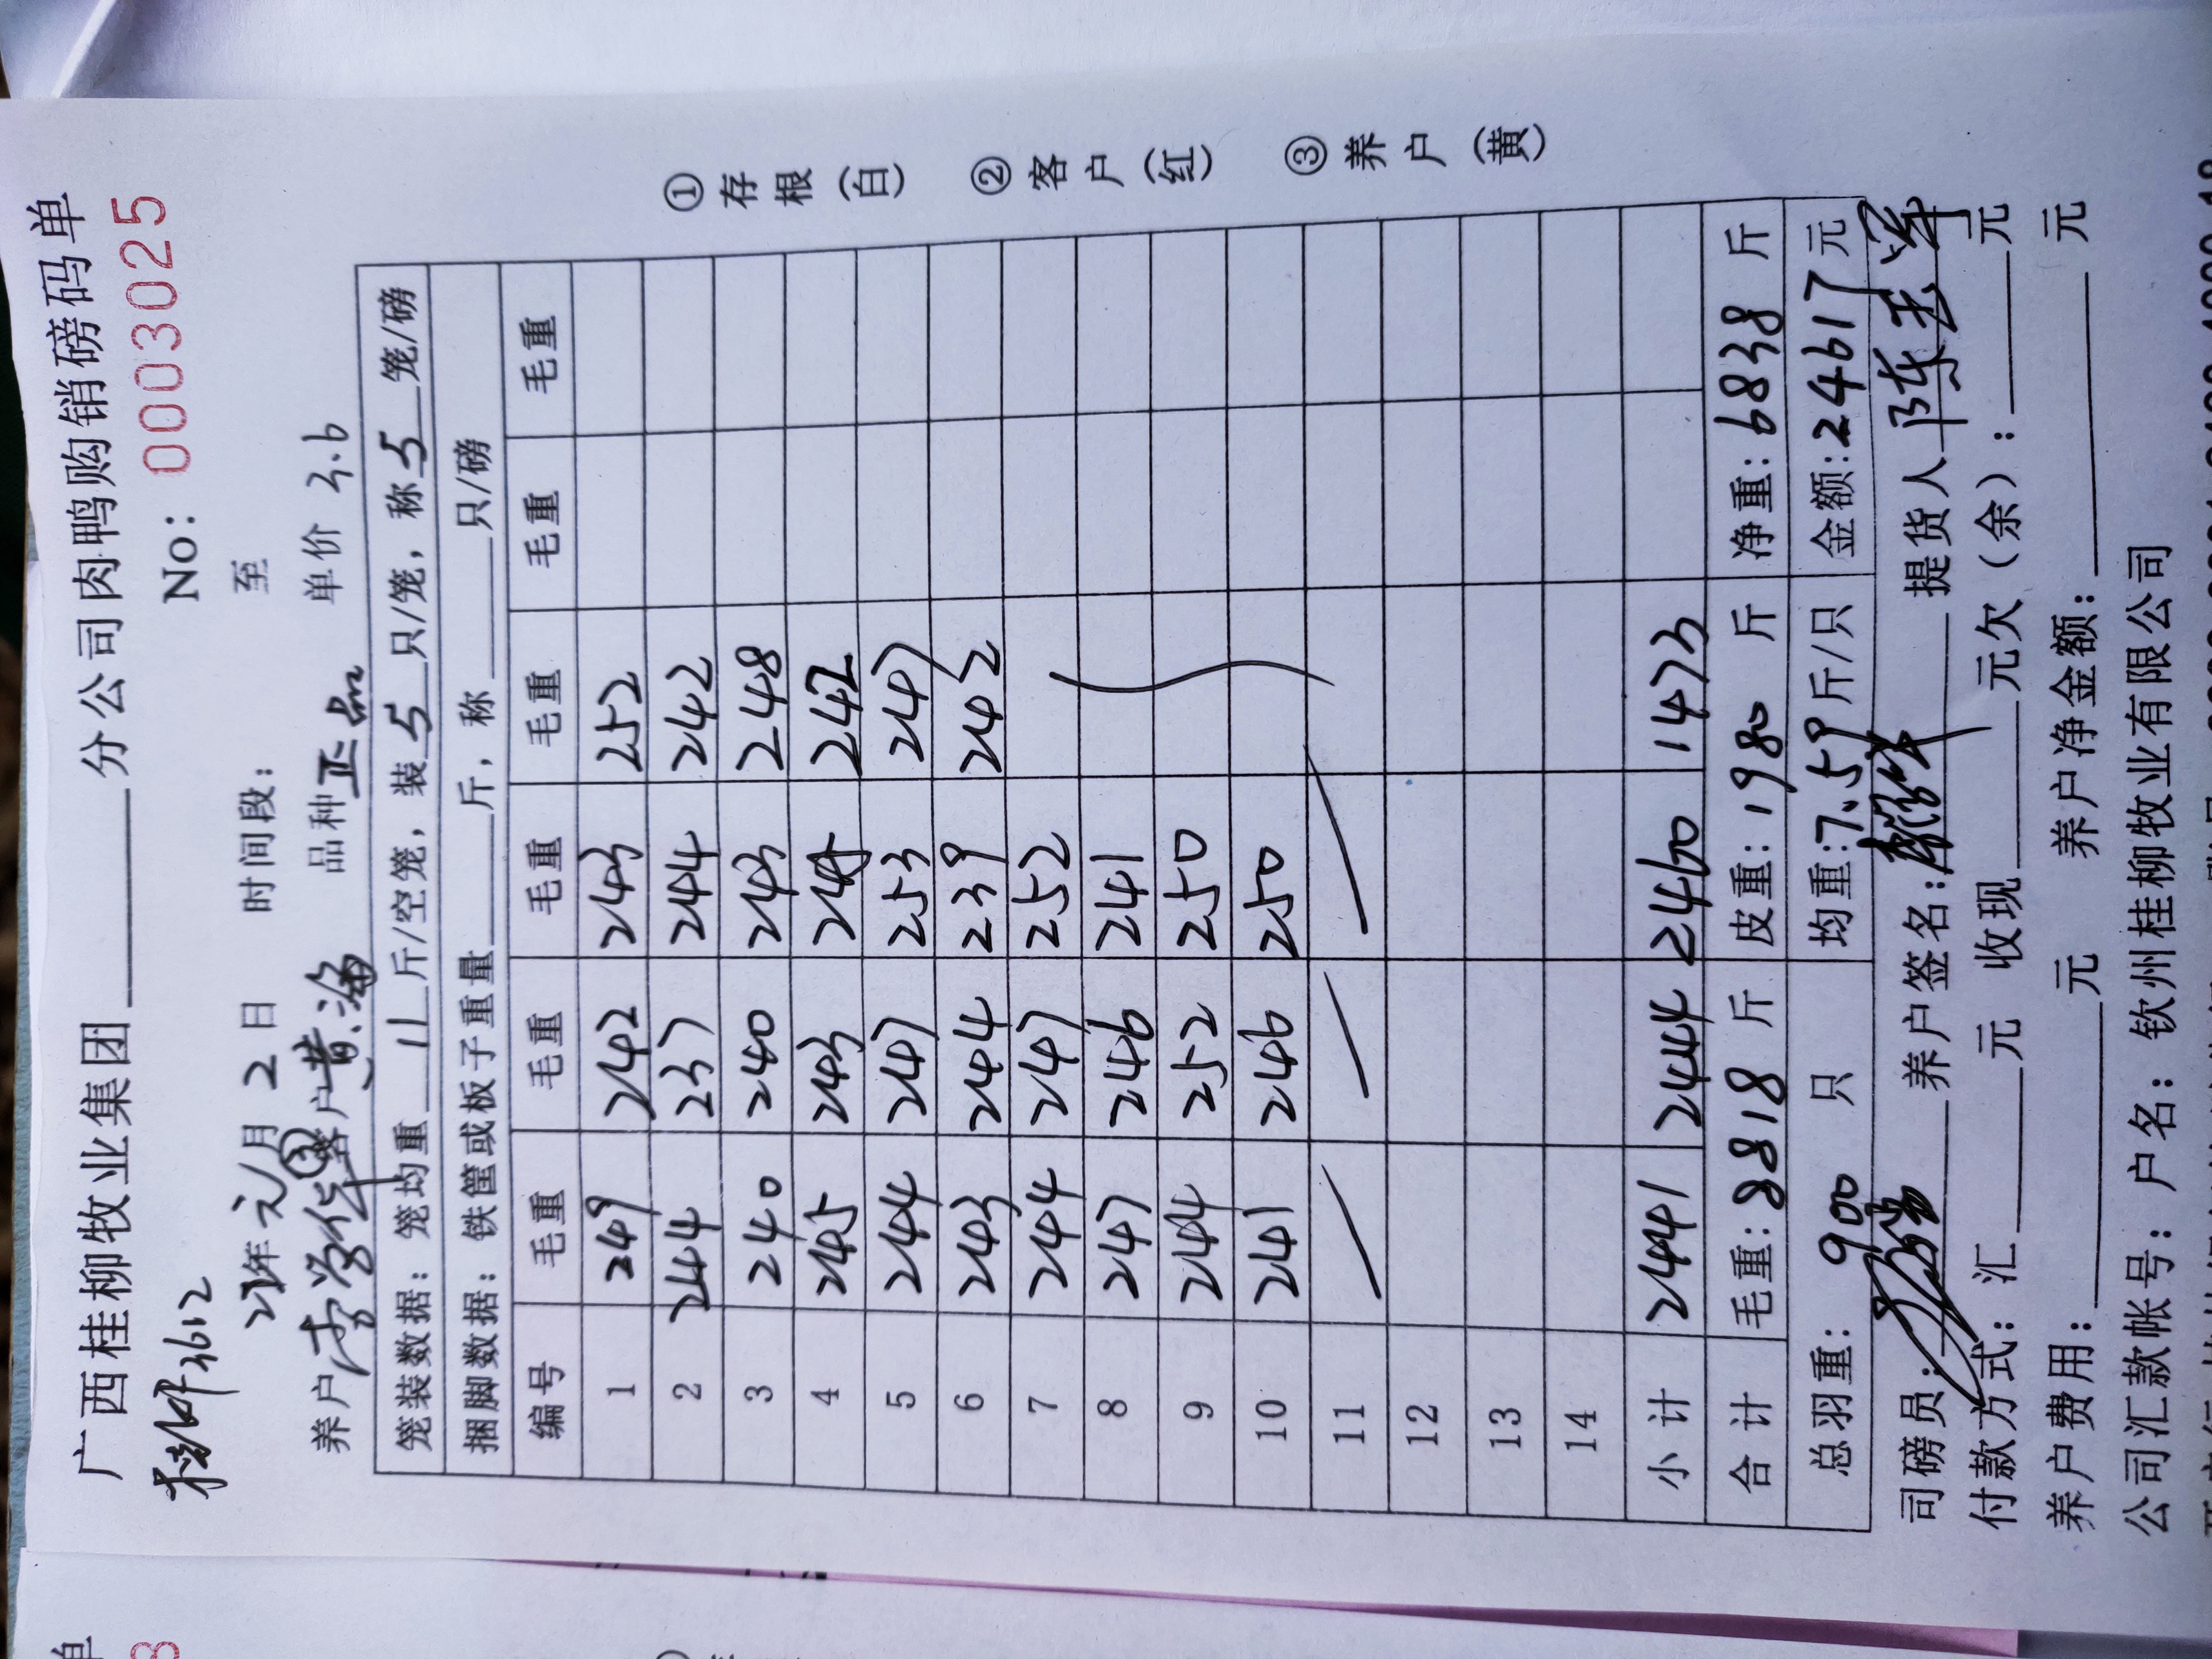 广西桂柳牧业集团 分公司肉鸭购销磅码单
3612 No: 0003025
年元月2日 时间段: 至
养户 李学华② 客户 黄海 品种 正品 单价 3.6
笼装数据: 笼均重 11 斤/空笼, 装 5 只/笼, 称 5 笼/磅
捆脚数据: 铁筐或板子重量 斤, 称 只/磅
编号 毛重 毛重 毛重 毛重 毛重
1 249 242 243 252
2 244 237 244 242
3 240 240 243 248
4 245 243 245 242
5 244 247 253 247
6 243 244 239 242
7 244 247 252
8 247 246 241
9 244 252 250
10 241 246 250
11
12
13
14
小计 2441 2444 2460 1473
合计 毛重: 8818 斤 皮重: 1980 斤 净重: 6838 斤
总羽重: 900 只 均重: 7.59 斤/只 金额: 24617 元
司磅员: 养户签名: 提货人
付款方式: 汇 元 收现 元欠(余): 元
养户费用: 元 养户净金额: 元
公司汇款帐号: 户名: 钦州桂柳牧业有限公司
①存根(白) ②客户(红) ③养户(黄)
单